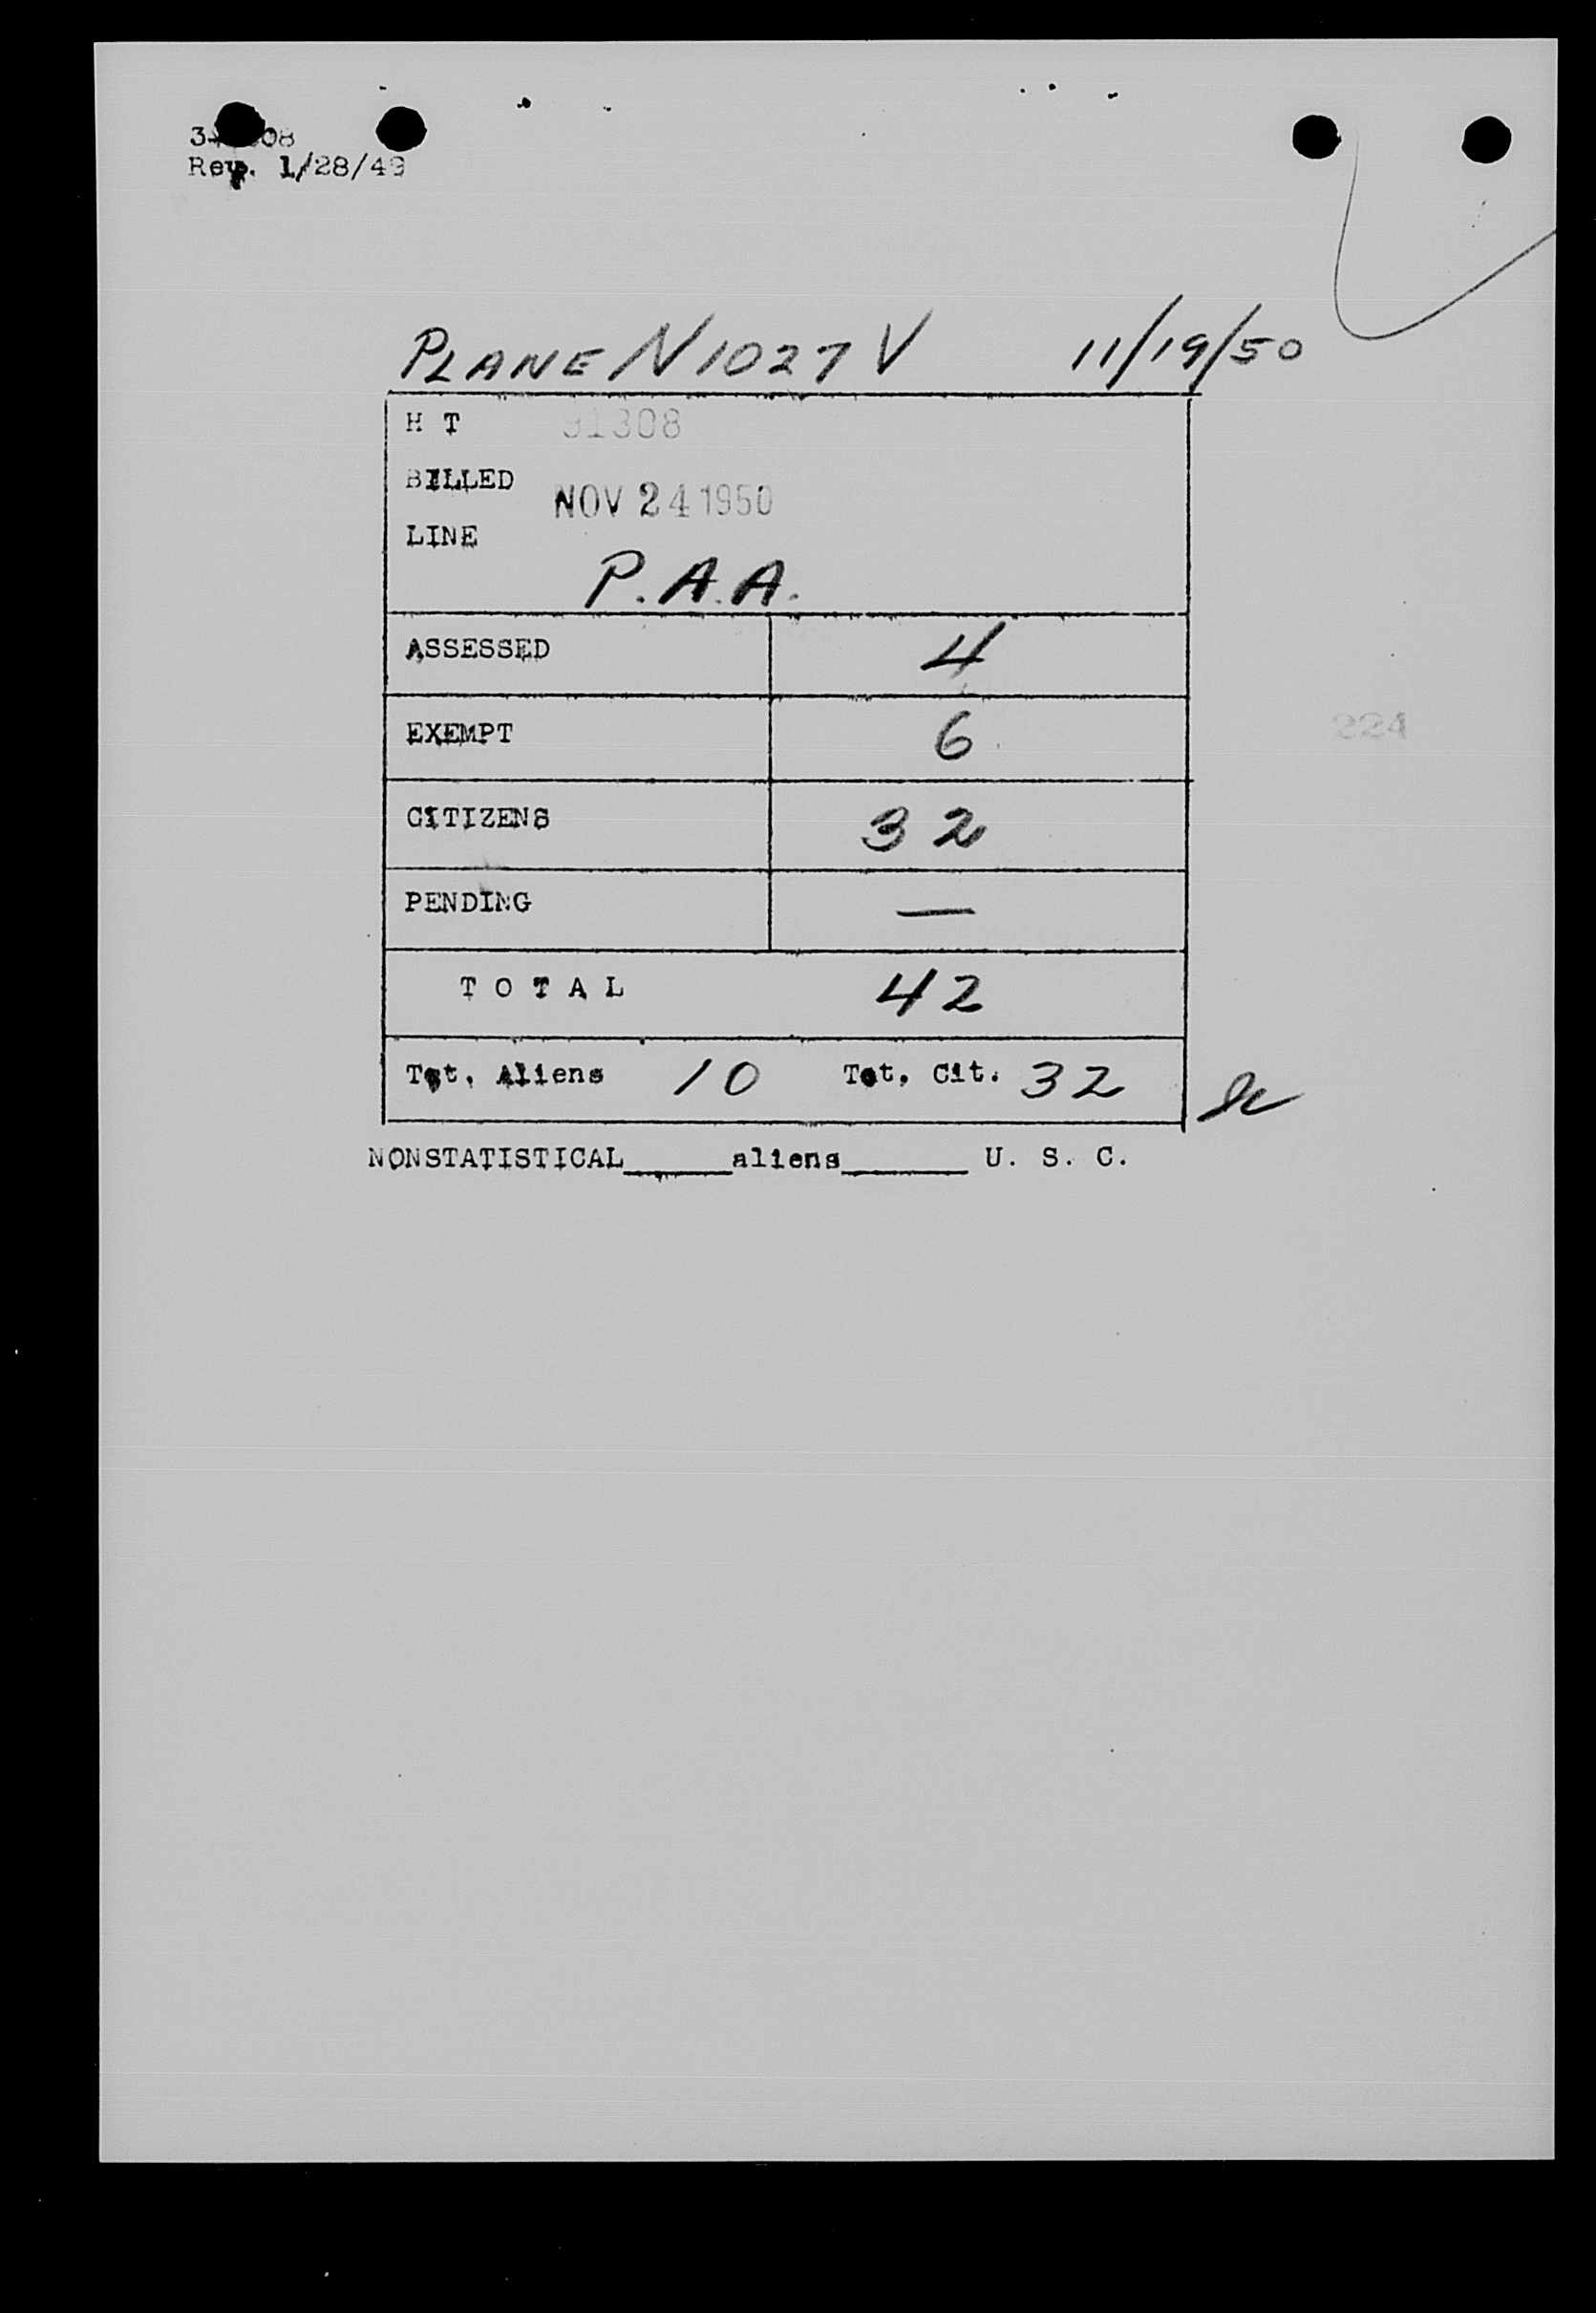 Rev. 1/28/49
PLANE N1027V 11/19/50
H T 91308
BILLED NOV 24 1950
LINE
P.A.A.
ASSESSED 4
EXEMPT 6
224
CITIZENS 32
PENDING —
TOTAL 42
Tot. Aliens 10 Tot. Cit. 32
NONSTATISTICAL______aliens_______ U. S. C.